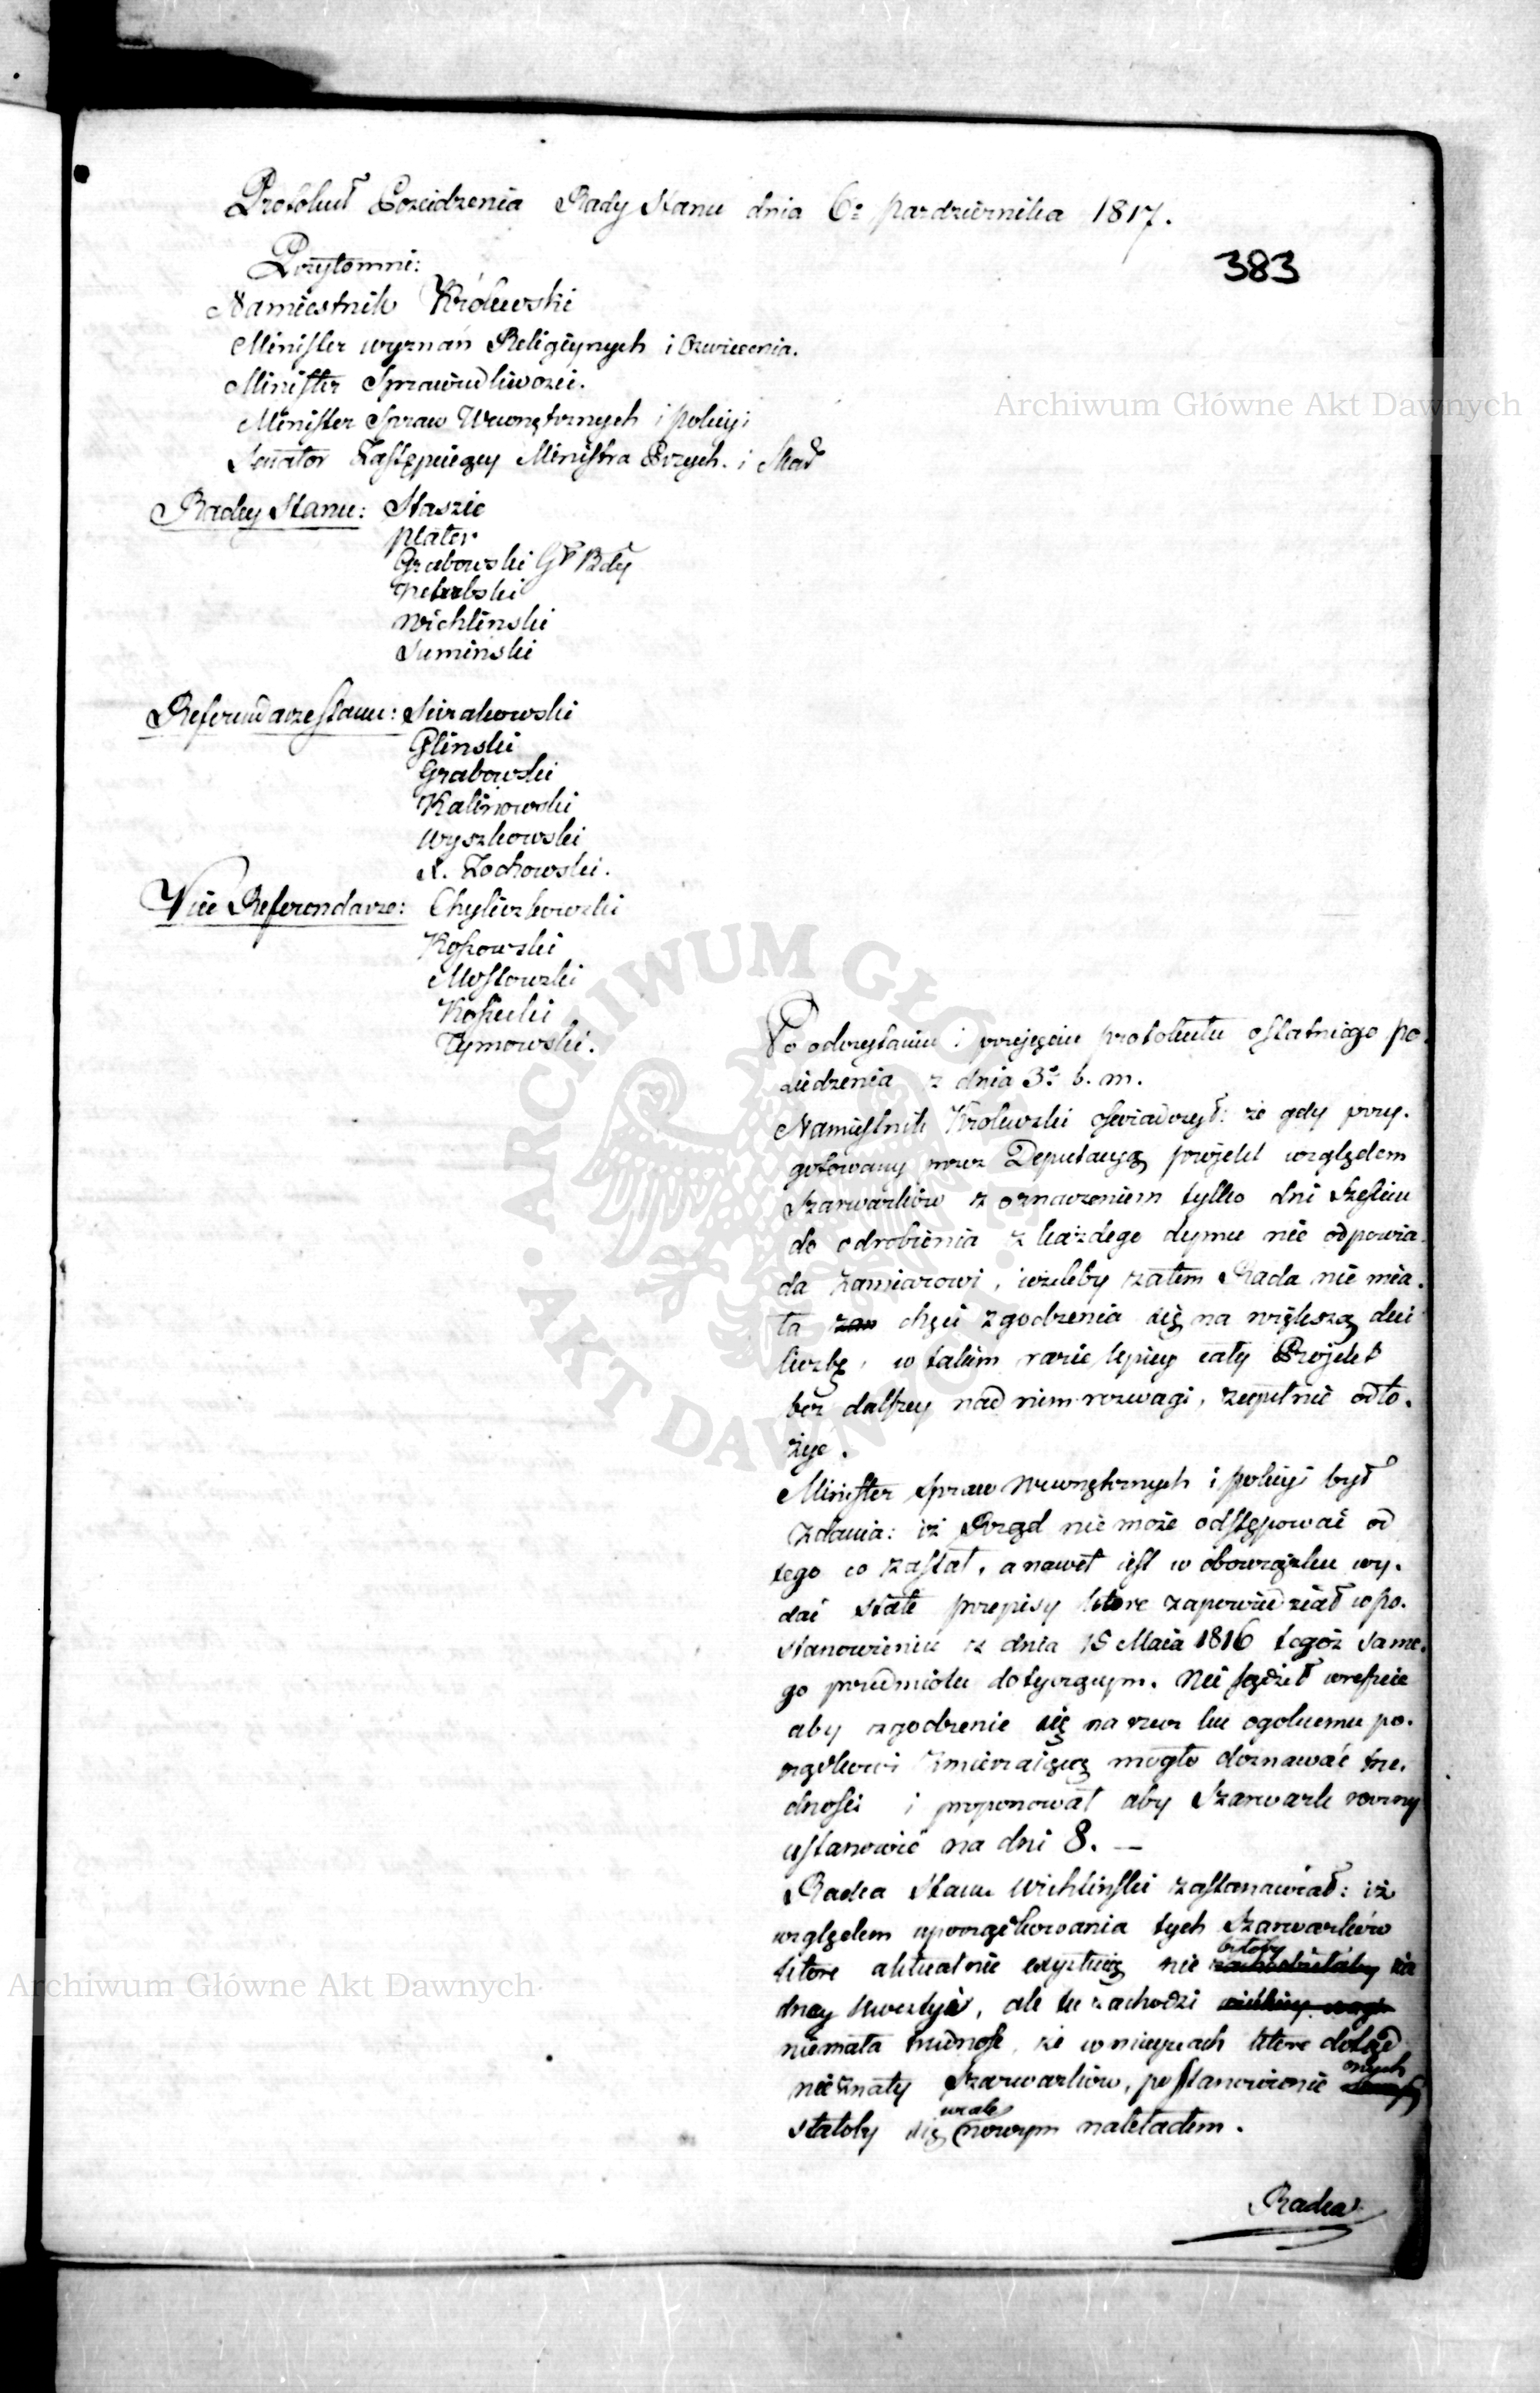 Protokuł Posiedzenia Rady Stanu dnia 6º pazdziernika 1817.
383
Przytomni:
Namiestnik Królewski
Minister wyznań Religiynych i Oświecenia.
Minister Sprawiedliwości.
Minister Spraw Wewnętrznych i policyi
Senator Zastępuiący Ministra Przych. i Skar
Radcy Stanu: Staszic
plater
Grabowski
Wichlinski
Suminski
Referendarze stanu: Sierakowski
Glinski
Grabowski
Kalinowski
Wyszkowski
X. Zochowski.
Vice Referendarze: Chyliczkowski
Kossowski
Mostowski
Kossecki
Tymowski.
Po odczytaniu i przyjęciu protokułu ostatniego po-
siedzenia z dnia 3º b. m.
Namiestnik Krolewski oswiadczył: że gdy przy-
gotowany przez Deputacyą projekt względem
Szarwarków z oznaczeniem tylko dni sześciu
do odrobienia z każdego dymu nie odpowia-
da zamiarowi, ieżeliby zatem Rada nie mia-
ła zan chęci zgodzenia się na większą dni
liczbę, w takim razie lepiey cały Projekt
bez dalszey nad niem rozwagi, zupełnie odło-
żyć.
Minister Spraw Wewnętrznych i policyi był
zdania: iż Rząd nie może odstępować od
tego co zastał, a nawet iest w obowiązku wy-
dać stałe przepisy które zapowiedział w po-
stanowieniu z dnia 18 Maia 1816 tegoż same-
go przedmiotu dotyczącym. Nie sądził wreszcie
aby zgodzenie się na rzecz ku ogolnemu po-
rządkowi zmierzaiącą mogło doznawać tru-
dności i proponował aby Szarwark roczny
ustanowić na dni 8. —
Radca Stanu Wichlinski zastanawiał: iż
względem uporządkowania tych Szarwarków
które aktualnie exystuią nie zachodziłaby byłoby ża
dney kwestyi, ale tu zachodzi
niemała trudność, że w mieyscach które dotąd
nieznały Szarwarków, postanowienie onych
stałoby się wcale nowym nakładem.
Radca
Archiwum Główne Akt Dawnych
Archiwum Główne Akt Dawnych
ARCHIWUM GŁÓWNE AKT DAWNYCH